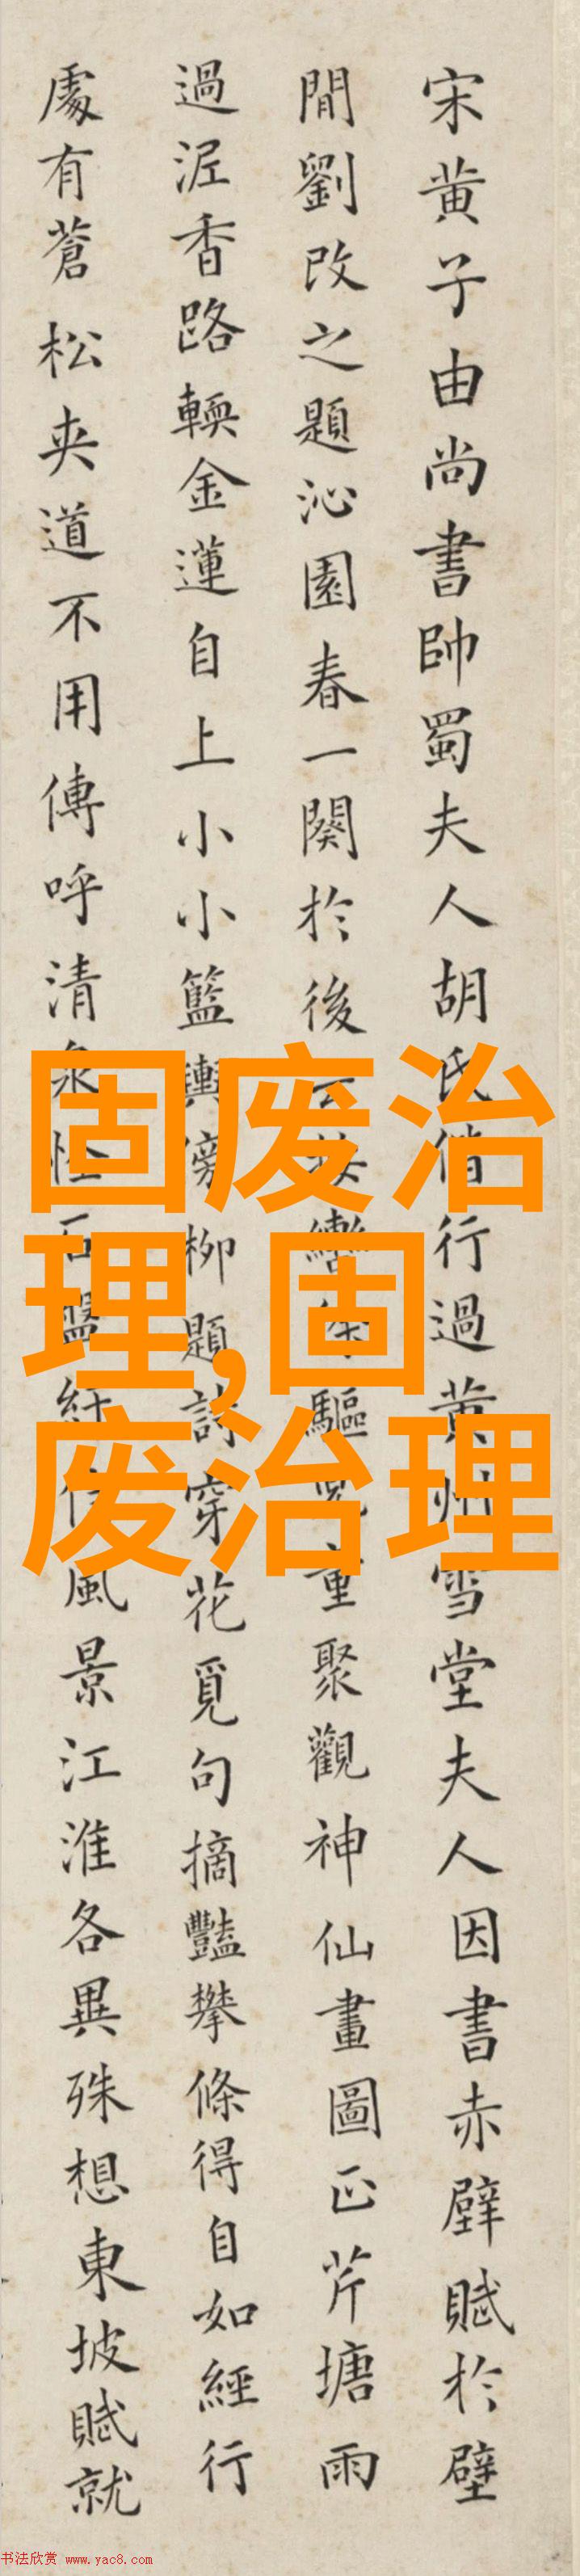 宋黄子由尚書帥蜀夫人胡氏偕行過黄州雪堂夫人因書赤壁賦於壁
間劉改之題沁園春一闋於後云按轡徐驅兒童聚觀神仙畫圖正芹塘雨
過泥香路輭金蓮自上小小籃輿傍柳題詩穿花覓句摘豔攀條得自如經行
處有蒼松夾道不用傳呼清泉恠石盤紆信風景江淮各異殊想東坡賦就
固废治
理,固
废治理
书法欣赏 www.yac8.com